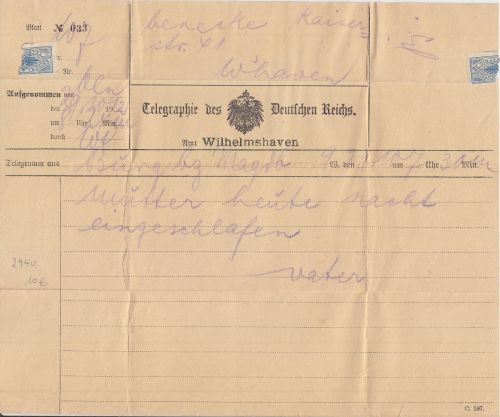 Blatt № 033
benecke Kaiser
str. 41
W'haven
Nr.
Aufgenommen von
den 19
um Uhr Min.
durch
Telegraphie des Deutschen Reichs.
Amt Wilhelmshaven
Telegramm aus Burg bz Magdb W. den um Uhr Min.
mutter heute nacht
eingeschlafen
vater
2940
10€
C. 187.